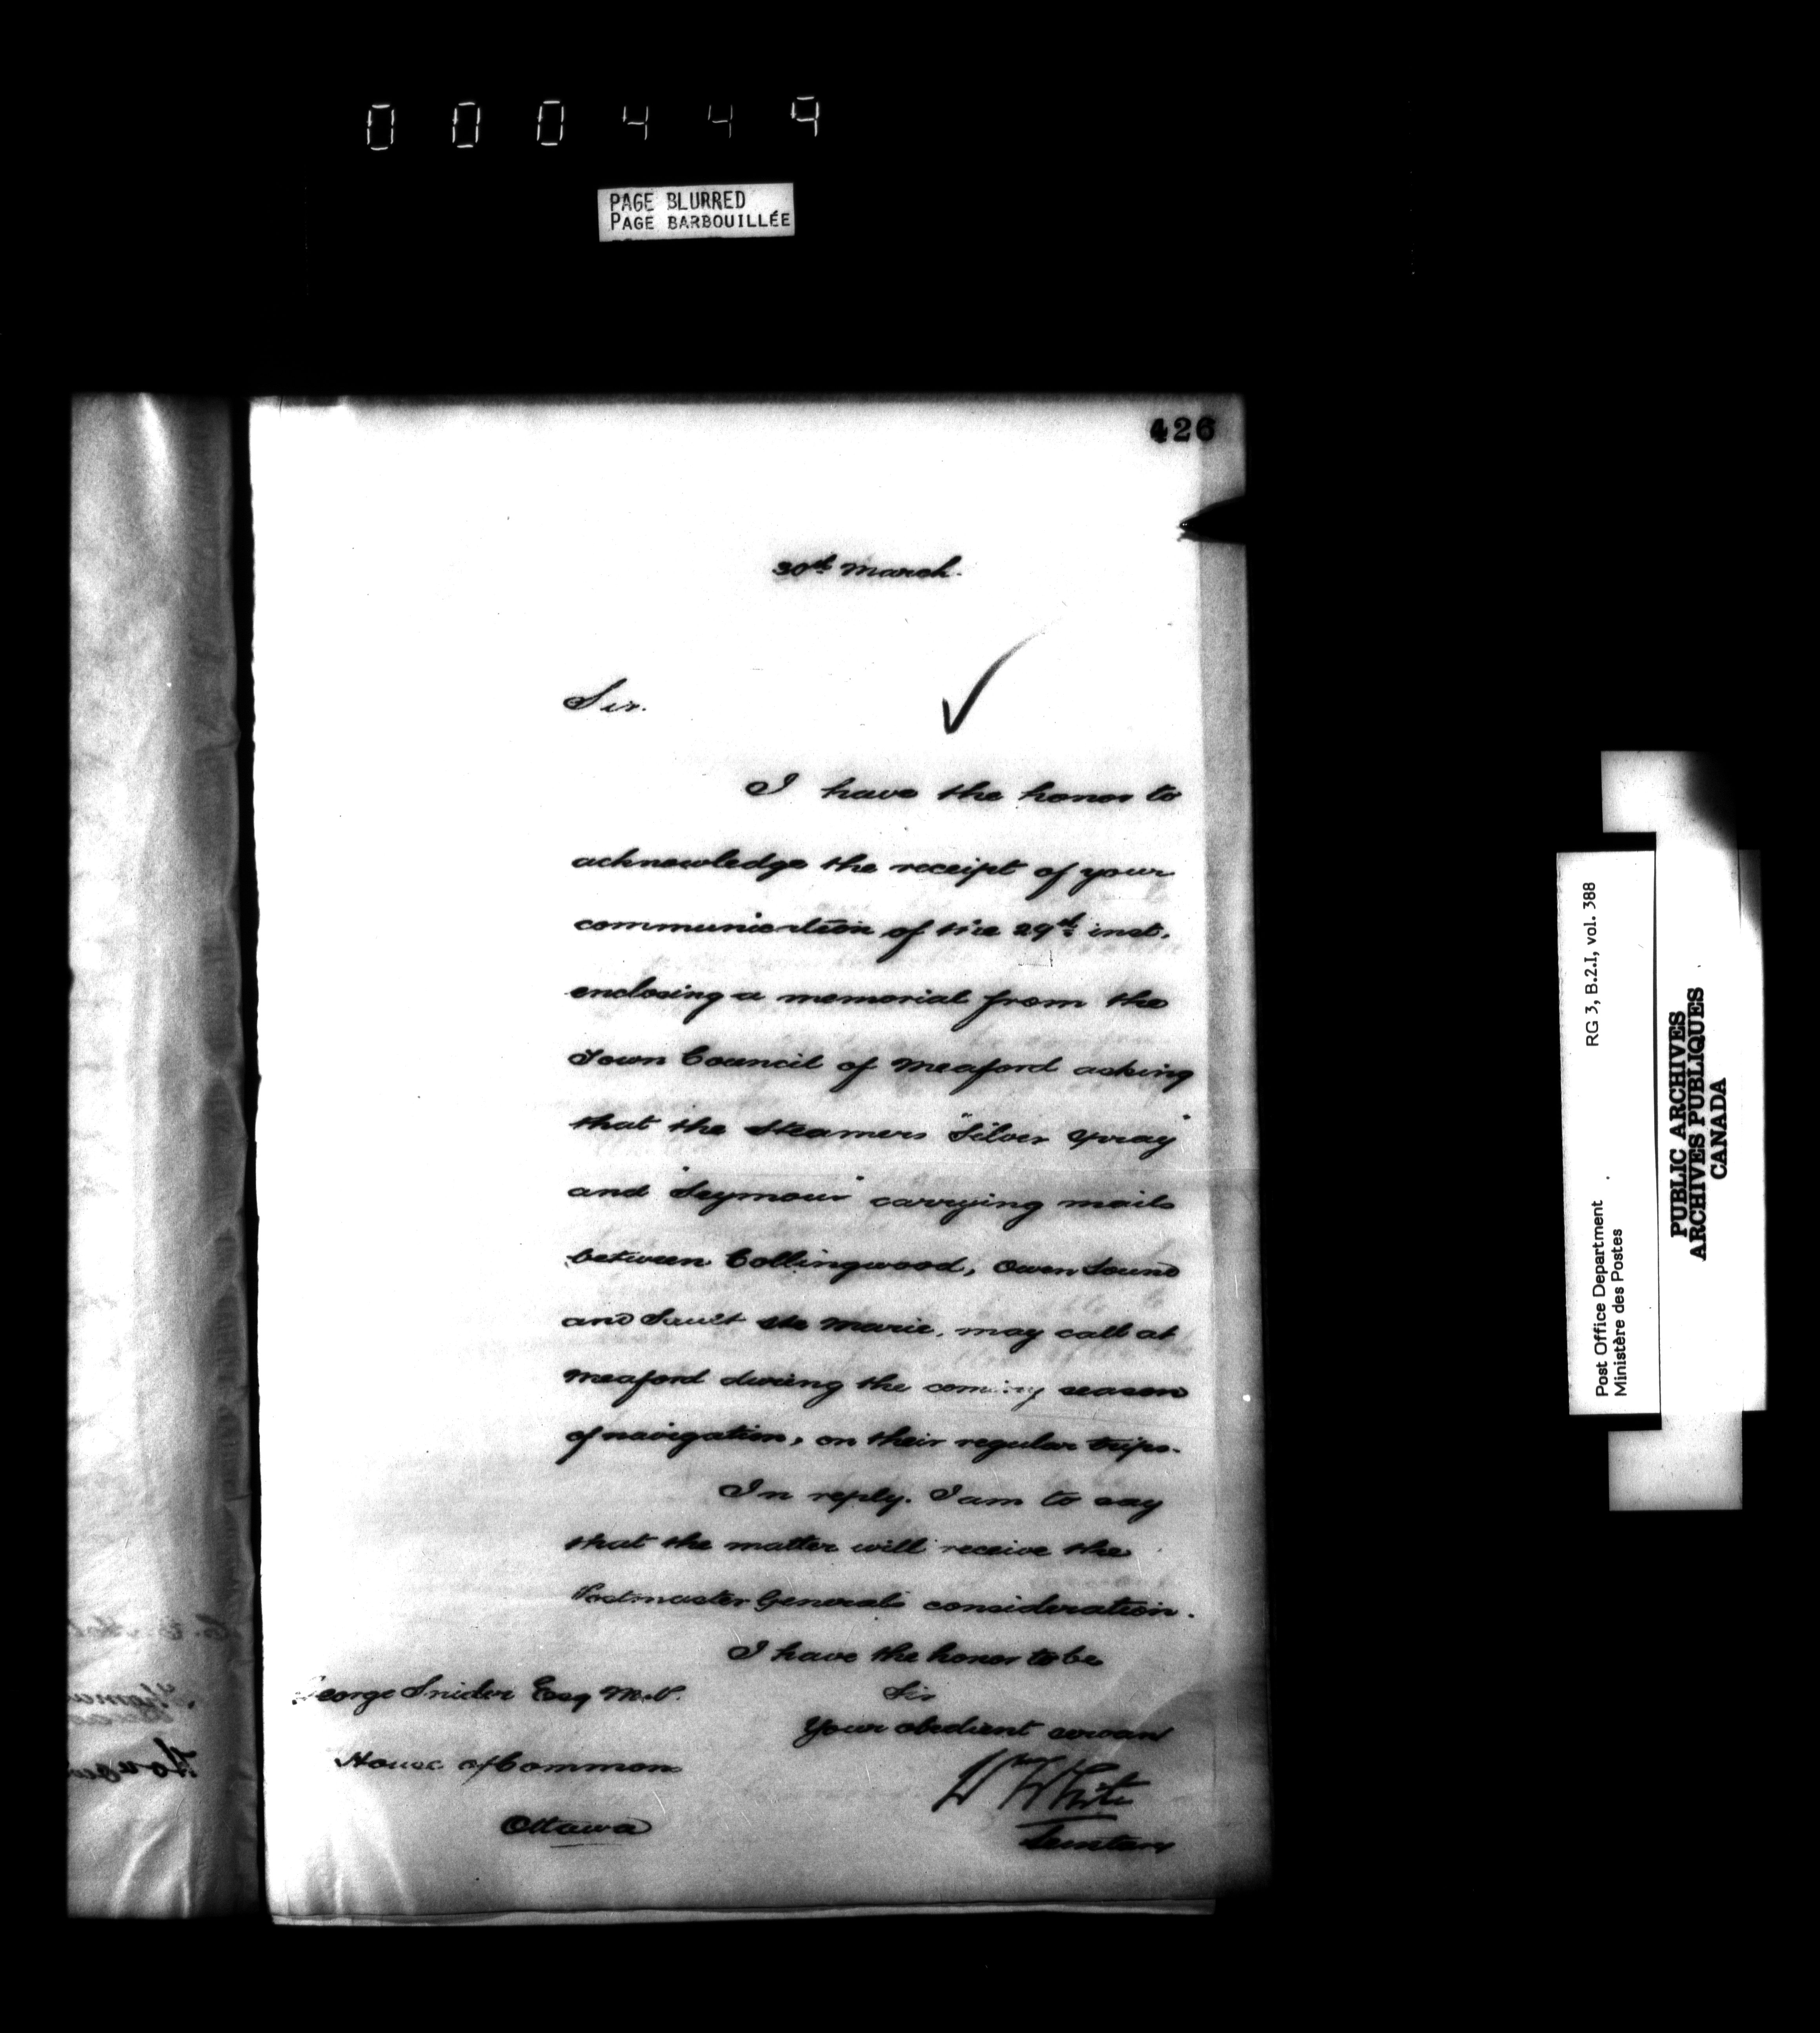 000449
PAGE BLURRED
PAGE BARBOUILLÉE
426
30th March.
Sir.
I have the honor to
acknowledge the receipt of your
communication of the 29th inst.
enclosing a memorial from the
Town Council of Meaford asking
that the Steamers "Silver Spray"
and "Seymour" carrying mails
between Collingwood, Owen Sound
and Sault Ste Marie, may call at
Meaford during the coming season
of navigation, on their regular trips.
In reply. I am to say
that the matter will receive the
Postmaster General's consideration.
I have the honor to be
Sir
Your obedient servant
W White
Secretary
George Snider Esq M.P.
House of Commons
Ottawa
RG 3, B.2.I, vol. 388
Post Office Department
Ministère des Postes
PUBLIC ARCHIVES
ARCHIVES PUBLIQUES
CANADA